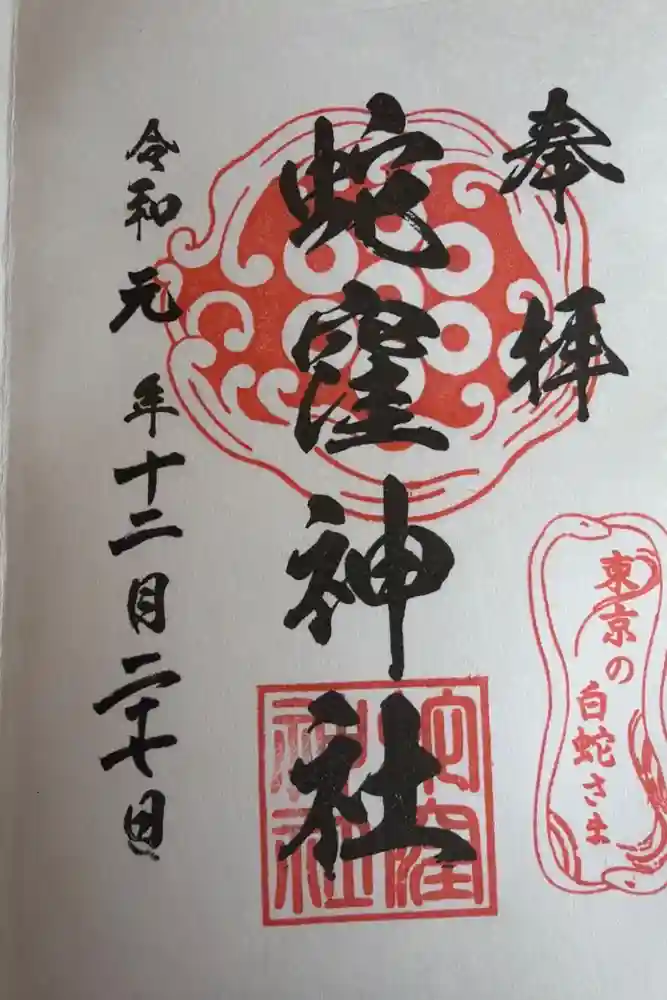 奉拝
東京の
白蛇さま
蛇窪神社
蛇窪
神社
令和元年十二月二十七日